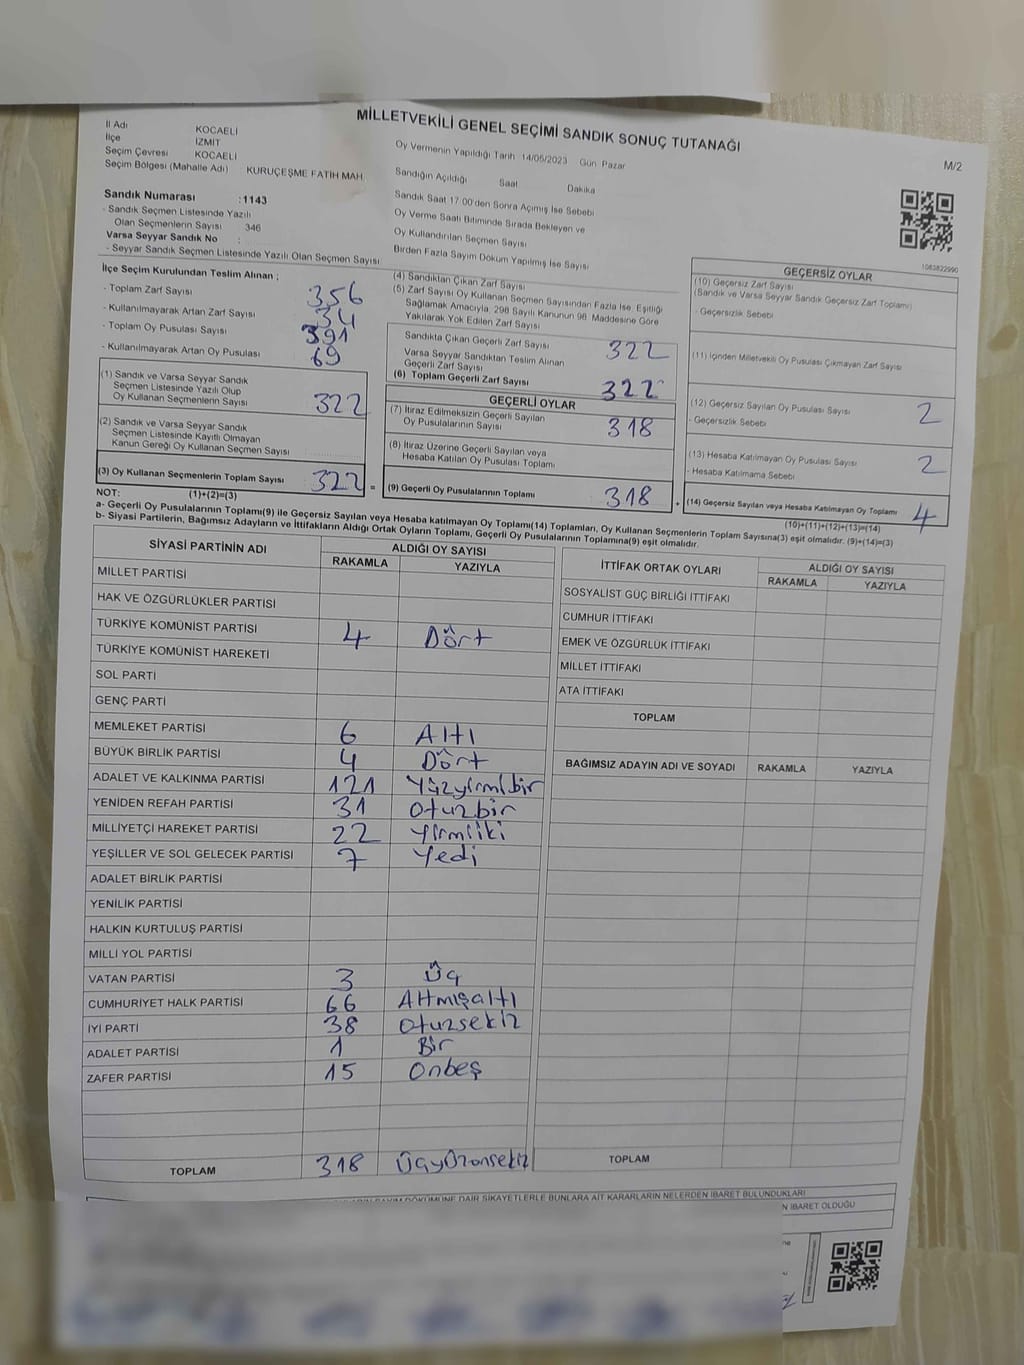 MİLLETVEKİLİ GENEL SEÇİMİ SANDIK SONUÇ TUTANAĞI
M/2
İl Adı KOCAELİ
İlçe İZMİT
Seçim Çevresi KOCAELİ
Seçim Bölgesi (Mahalle Adı) KURUÇEŞME FATİH MAH.
Sandık Numarası :1143
- Sandık Seçmen Listesinde Yazılı
Olan Seçmenlerin Sayısı 346
Varsa Seyyar Sandık No :
- Seyyar Sandık Seçmen Listesinde Yazılı Olan Seçmen Sayısı
Oy Vermenin Yapıldığı Tarih 14/05/2023 Gün Pazar
Sandığın Açıldığı Saat Dakika
Sandık Saat 17.00'den Sonra Açımış İse Sebebi
Oy Verme Saati Bitiminde Sırada Bekleyen ve
Oy Kullandırılan Seçmen Sayısı
Birden Fazla Sayım Döküm Yapılmış İse Sayısı
1083822990
İlçe Seçim Kurulundan Teslim Alınan ;
- Toplam Zarf Sayısı 356
- Kullanılmayarak Artan Zarf Sayısı 34
- Toplam Oy Pusulası Sayısı 391
- Kullanılmayarak Artan Oy Pusulası 69
(1) Sandık ve Varsa Seyyar Sandık
Seçmen Listesinde Yazılı Olup
Oy Kullanan Seçmenlerin Sayısı 322
(2) Sandık ve Varsa Seyyar Sandık
Seçmen Listesinde Kayıtlı Olmayan
Kanun Gereği Oy Kullanan Seçmen Sayısı
(3) Oy Kullanan Seçmenlerin Toplam Sayısı 322 =
(1)+(2)=(3)
(4) Sandıktan Çıkan Zarf Sayısı
(5) Zarf Sayısı Oy Kullanan Seçmen Sayısından Fazla İse, Eşitliği
Sağlamak Amacıyla 298 Sayılı Kanunun 98. Maddesine Göre
Yakılarak Yok Edilen Zarf Sayısı
Sandıkta Çıkan Geçerli Zarf Sayısı 322
Varsa Seyyar Sandıktan Teslim Alınan
Geçerli Zarf Sayısı
(6) Toplam Geçerli Zarf Sayısı 322
GEÇERLİ OYLAR
(7) İtiraz Edilmeksizin Geçerli Sayılan
Oy Pusulalarının Sayısı 318
(8) İtiraz Üzerine Geçerli Sayılan veya
Hesaba Katılan Oy Pusulası Toplamı
(9) Geçerli Oy Pusulalarının Toplamı 318 +
GEÇERSİZ OYLAR
(10) Geçersiz Zarf Sayısı
(Sandık ve Varsa Seyyar Sandık Geçersiz Zarf Toplamı)
- Geçersizlik Sebebi
(11) İçinden Milletvekili Oy Pusulası Çıkmayan Zarf Sayısı
(12) Geçersiz Sayılan Oy Pusulası Sayısı 2
- Geçersizlik Sebebi
(13) Hesaba Katılmayan Oy Pusulası Sayısı 2
- Hesaba Katılmama Sebebi
(14) Geçersiz Sayılan veya Hesaba Katılmayan Oy Toplamı 4
(10)+(11)+(12)+(13)=(14)
NOT:
a- Geçerli Oy Pusulalarının Toplamı(9) ile Geçersiz Sayılan veya Hesaba katılmayan Oy Toplamı(14) Toplamları, Oy Kullanan Seçmenlerin Toplam Sayısına(3) eşit olmalıdır. (9)+(14)=(3)
b- Siyasi Partilerin, Bağımsız Adayların ve İttifakların Aldığı Ortak Oyların Toplamı, Geçerli Oy Pusulalarının Toplamına(9) eşit olmalıdır.
SİYASİ PARTİNİN ADI ALDIĞI OY SAYISI
RAKAMLA YAZIYLA
MİLLET PARTİSİ
HAK VE ÖZGÜRLÜKLER PARTİSİ
TÜRKİYE KOMÜNİST PARTİSİ 4 Dört
TÜRKİYE KOMÜNİST HAREKETİ
SOL PARTİ
GENÇ PARTİ
MEMLEKET PARTİSİ 6 Altı
BÜYÜK BİRLİK PARTİSİ 4 Dört
ADALET VE KALKINMA PARTİSİ 121 Yüzyirmibir
YENİDEN REFAH PARTİSİ 31 Otuzbir
MİLLİYETÇİ HAREKET PARTİSİ 22 Yirmiiki
YEŞİLLER VE SOL GELECEK PARTİSİ 7 Yedi
ADALET BİRLİK PARTİSİ
YENİLİK PARTİSİ
HALKIN KURTULUŞ PARTİSİ
MİLLİ YOL PARTİSİ
VATAN PARTİSİ 3 Üç
CUMHURİYET HALK PARTİSİ 66 Altmışaltı
İYİ PARTİ 38 Otuzsekiz
ADALET PARTİSİ 1 Bir
ZAFER PARTİSİ 15 Onbeş
TOPLAM 318 Üçyüzonsekiz
İTTİFAK ORTAK OYLARI ALDIĞI OY SAYISI
RAKAMLA YAZIYLA
SOSYALİST GÜÇ BİRLİĞİ İTTİFAKI
CUMHUR İTTİFAKI
EMEK VE ÖZGÜRLÜK İTTİFAKI
MİLLET İTTİFAKI
ATA İTTİFAKI
TOPLAM
BAĞIMSIZ ADAYIN ADI VE SOYADI RAKAMLA YAZIYLA
TOPLAM
DÖKÜMÜNE DAİR ŞİKAYETLERLE BUNLARA AİT KARARLARIN NELERDEN İBARET BULUNDUKLARI
N İBARET OLDUĞU